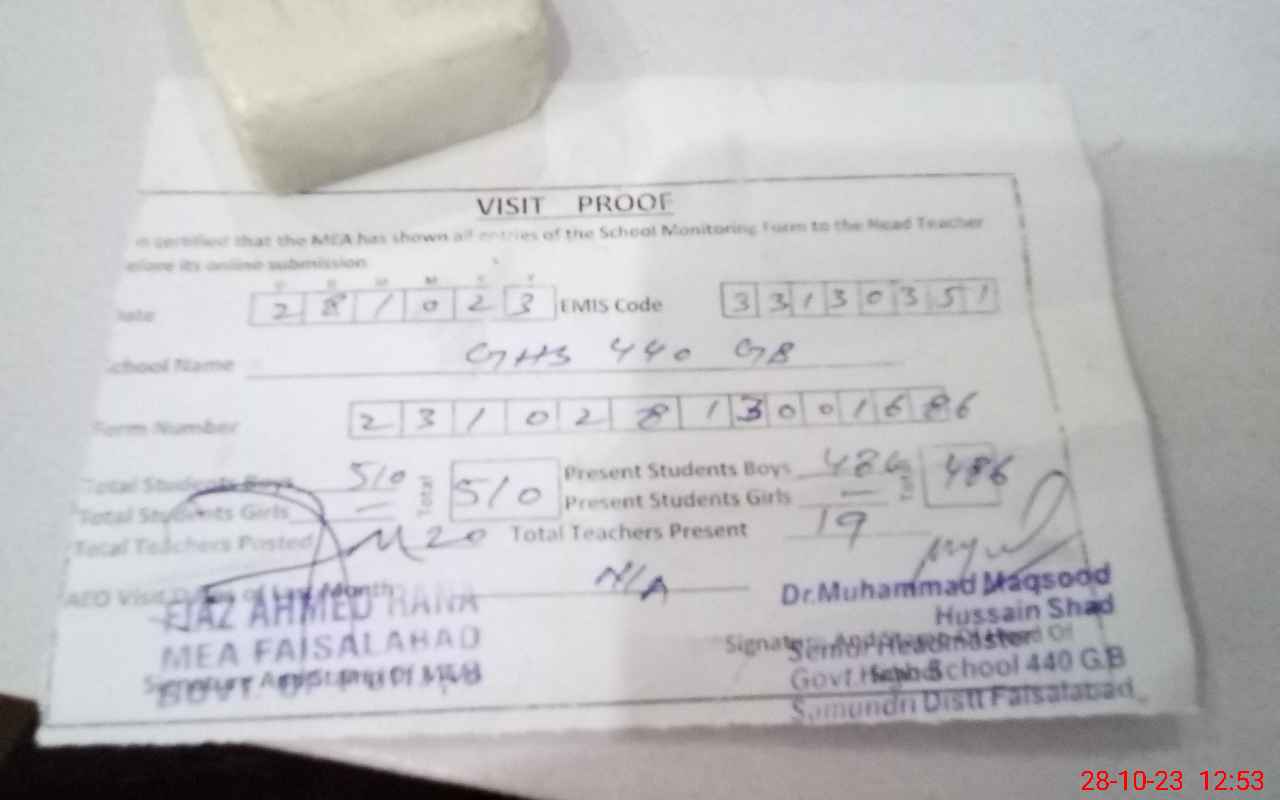 VISIT PROOF
certified that the MEA has shown all entries of the School Monitoring Form to the Head Teacher
before its online submission
Date 2 8 1 0 2 3 EMIS Code 3 3 1 3 0 3 5 1
School Name GHS 440 GB
Form Number 2 3 1 0 2 8 1 3 0 0 1 6 8 6
Total Students Boys 510 Total 510 Present Students Boys 486 Total 486
Total Students Girls — Present Students Girls —
Total Teachers Posted 20 Total Teachers Present 19
AEO Visit of Last Month N/A
EJAZ AHMED RANA
MEA FAISALABAD
GOVT OF
Dr.Muhammad Maqsood
Hussain Shad
Senior Headmaster
Govt High School 440 G.B
Samundri Distt Faisalabad
28-10-23 12:53